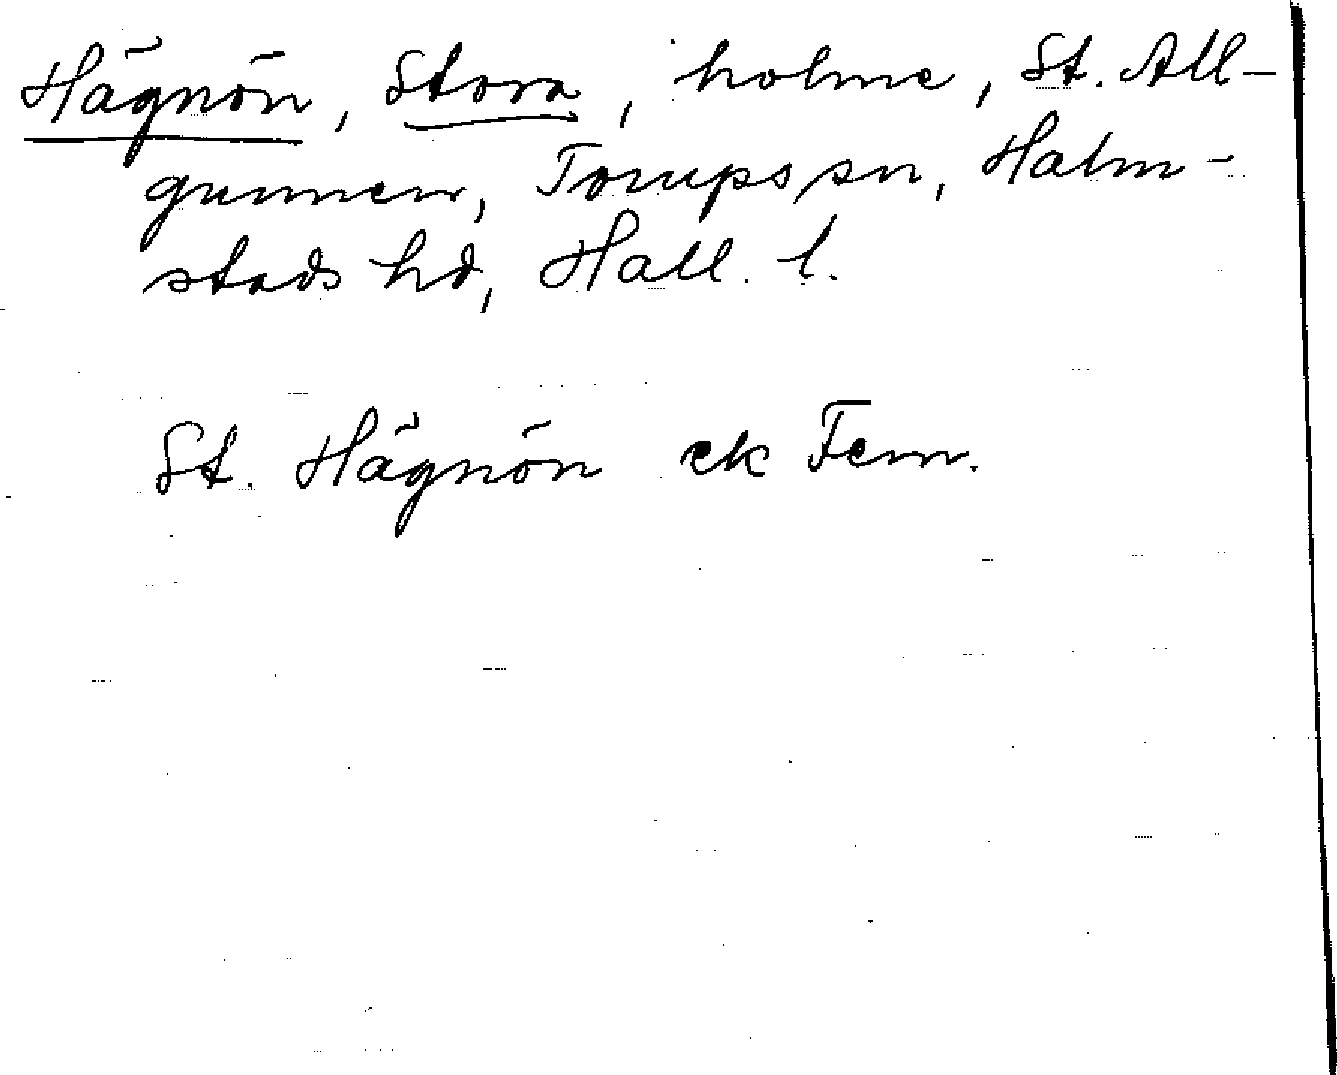 Hägnön, Stora, holme, St. All-
gunnen, Torups sn, Halm-
stads hd, Hall. l.
St. Hägnön ek Fem.